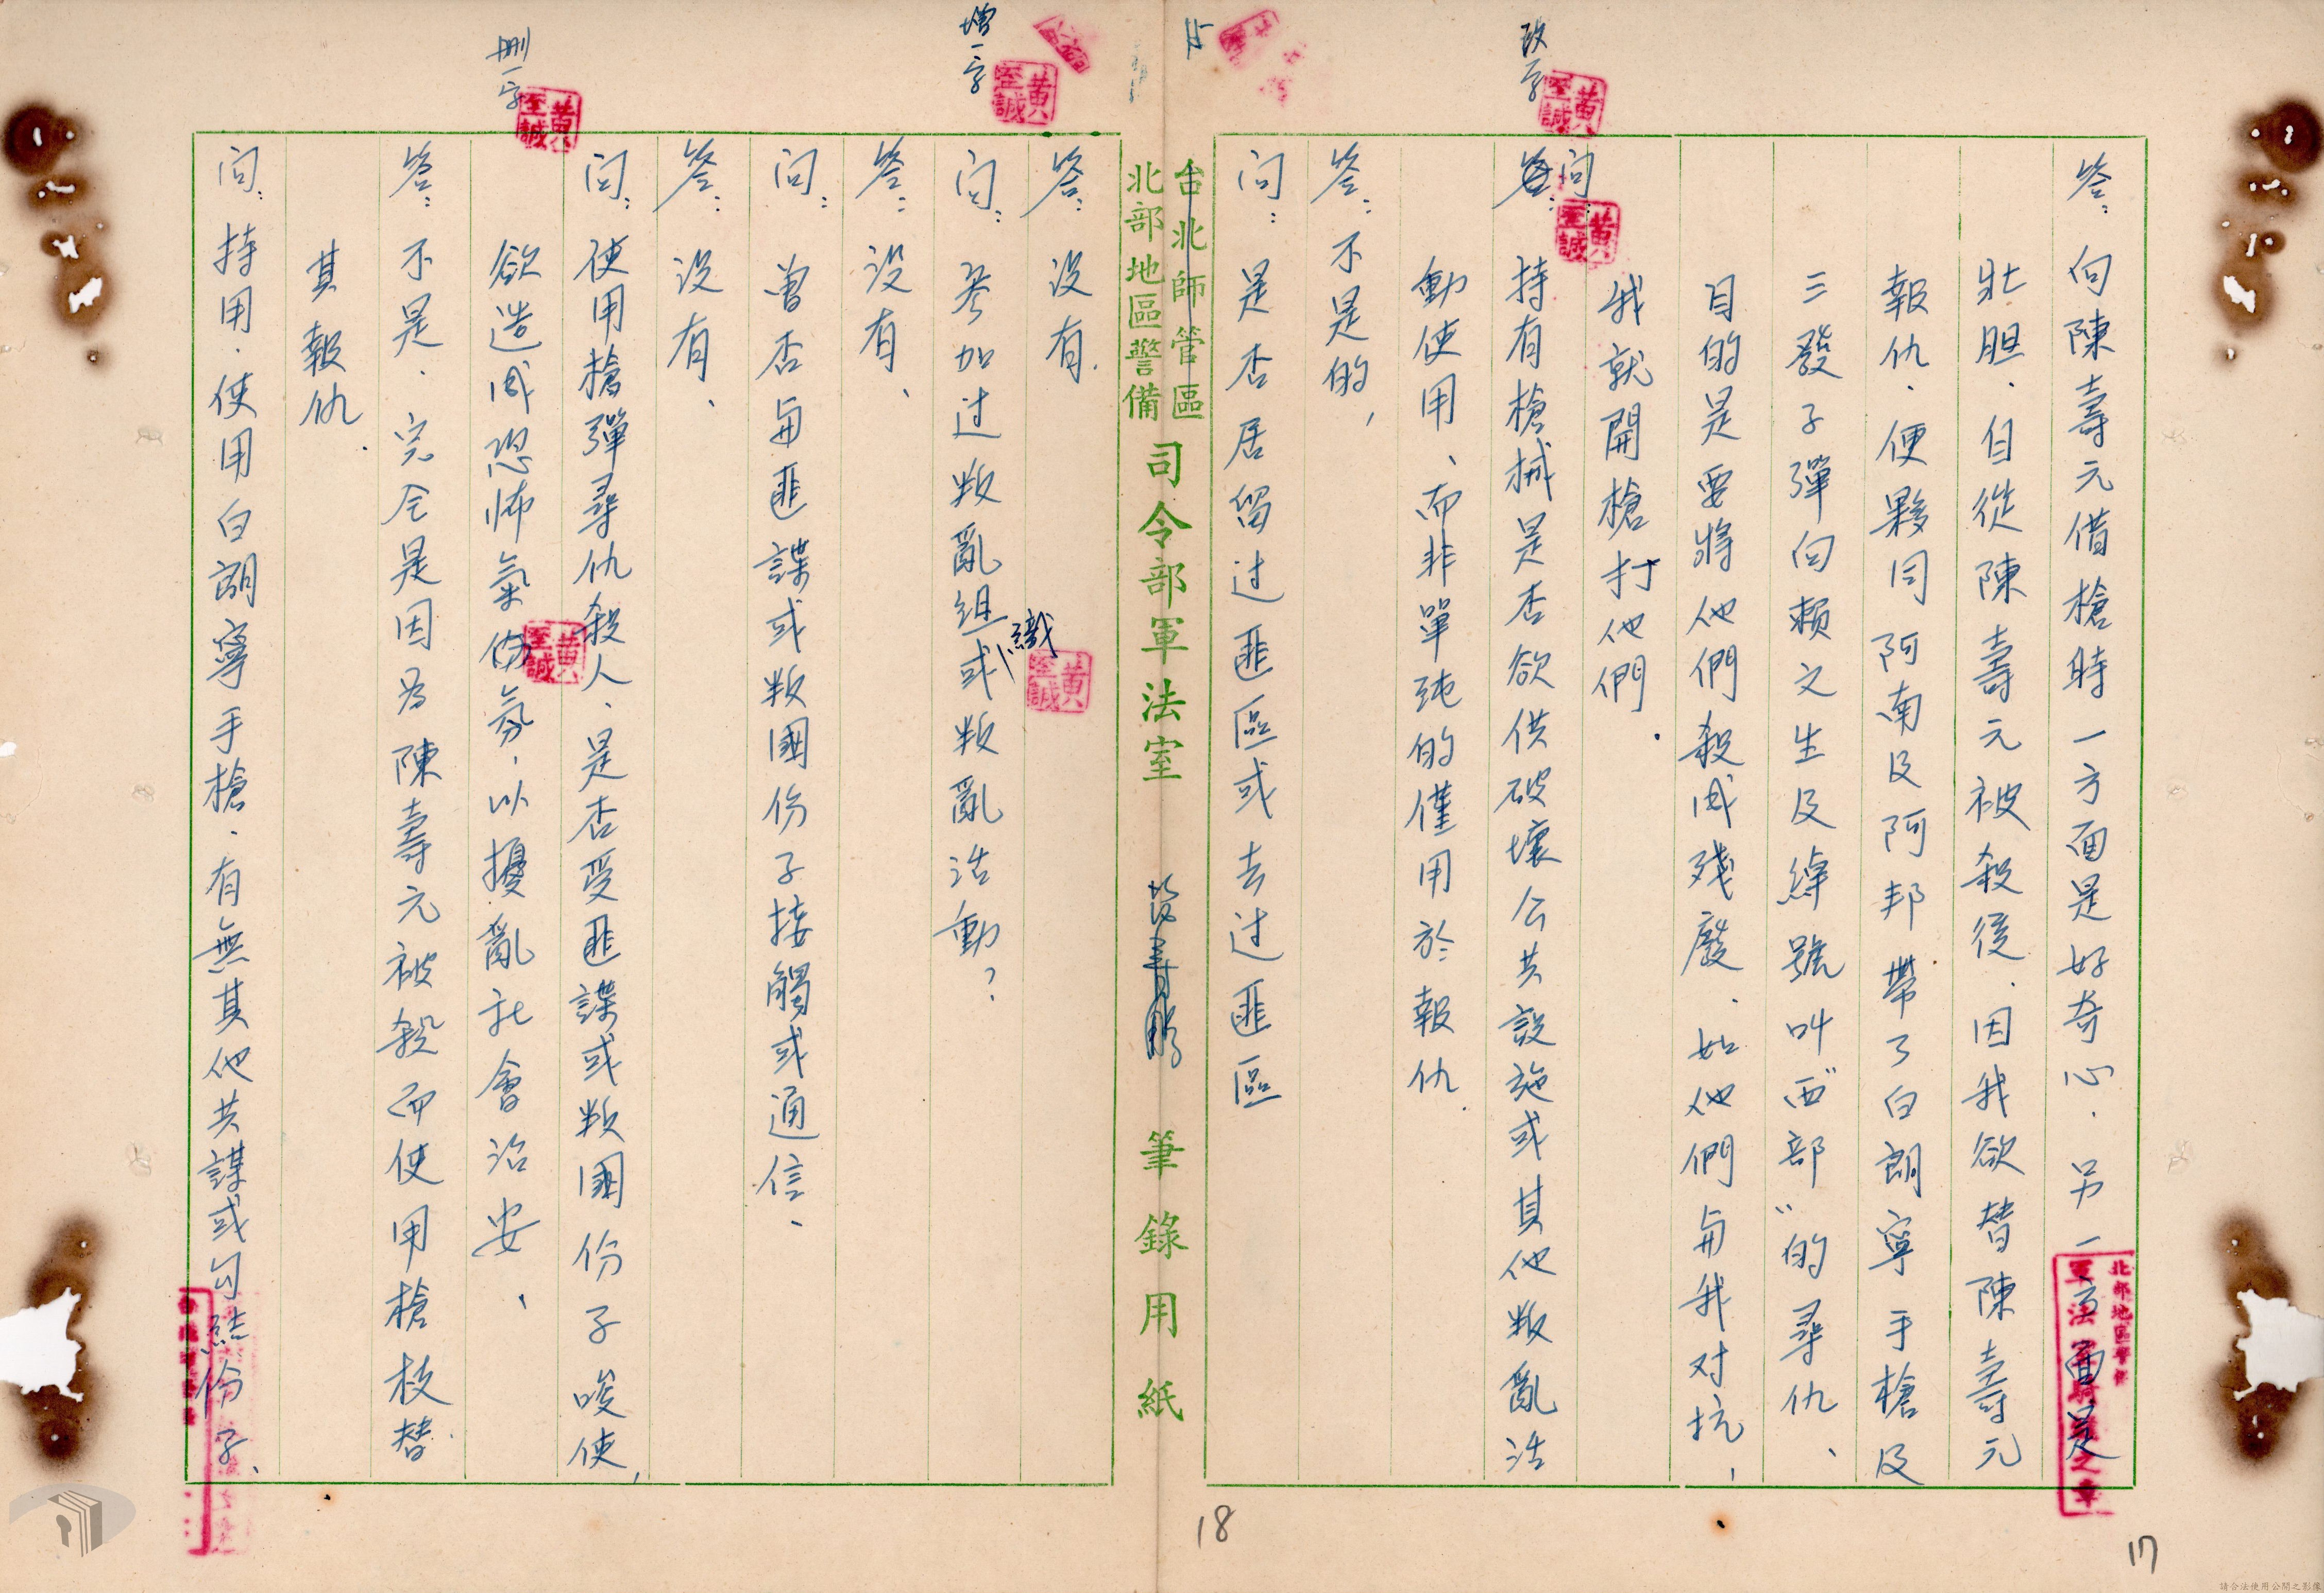 答：向陳壽元借槍時一方面是好奇心．另一方面是
壯胆．自從陳壽元被殺後．因我欲替陳壽元
報仇．便夥同阿南及阿邦帶了白朗寧手槍及
三發子彈向賴文生及綽號叫"西部"的尋仇、
目的是要將他們殺成殘廢．如他們与我对抗，
我就開槍打他們．
改一字
黃至誠
問：持有槍械是否欲供破壞公共設施或其他叛亂活
黃至誠
動使用、而非單純的僅用於報仇．
答：不是的，
問：是否居留过匪區或去过匪區
台北師管區
北部地區警備
司令部軍法室
筆錄用紙
答：沒有．
增一字
黃至誠
問：參加过叛亂組織或叛亂活動？
黃至誠
答：沒有、
問：曾否与匪諜或叛國份子接觸或通信、
答：沒有、
問：使用槍彈尋仇殺人、是否受匪諜或叛國份子唆使，
刪一字
黃至誠
欲造成恐怖氣氛，以擾亂社會治安、
黃至誠
答：不是．完全是因為陳壽元被殺而使用槍枝替
其報仇．
問：持用．使用白朗寧手槍．有無其他共謀或勾結份子、
北部地區警備
18
17
請合法使用公開之影像